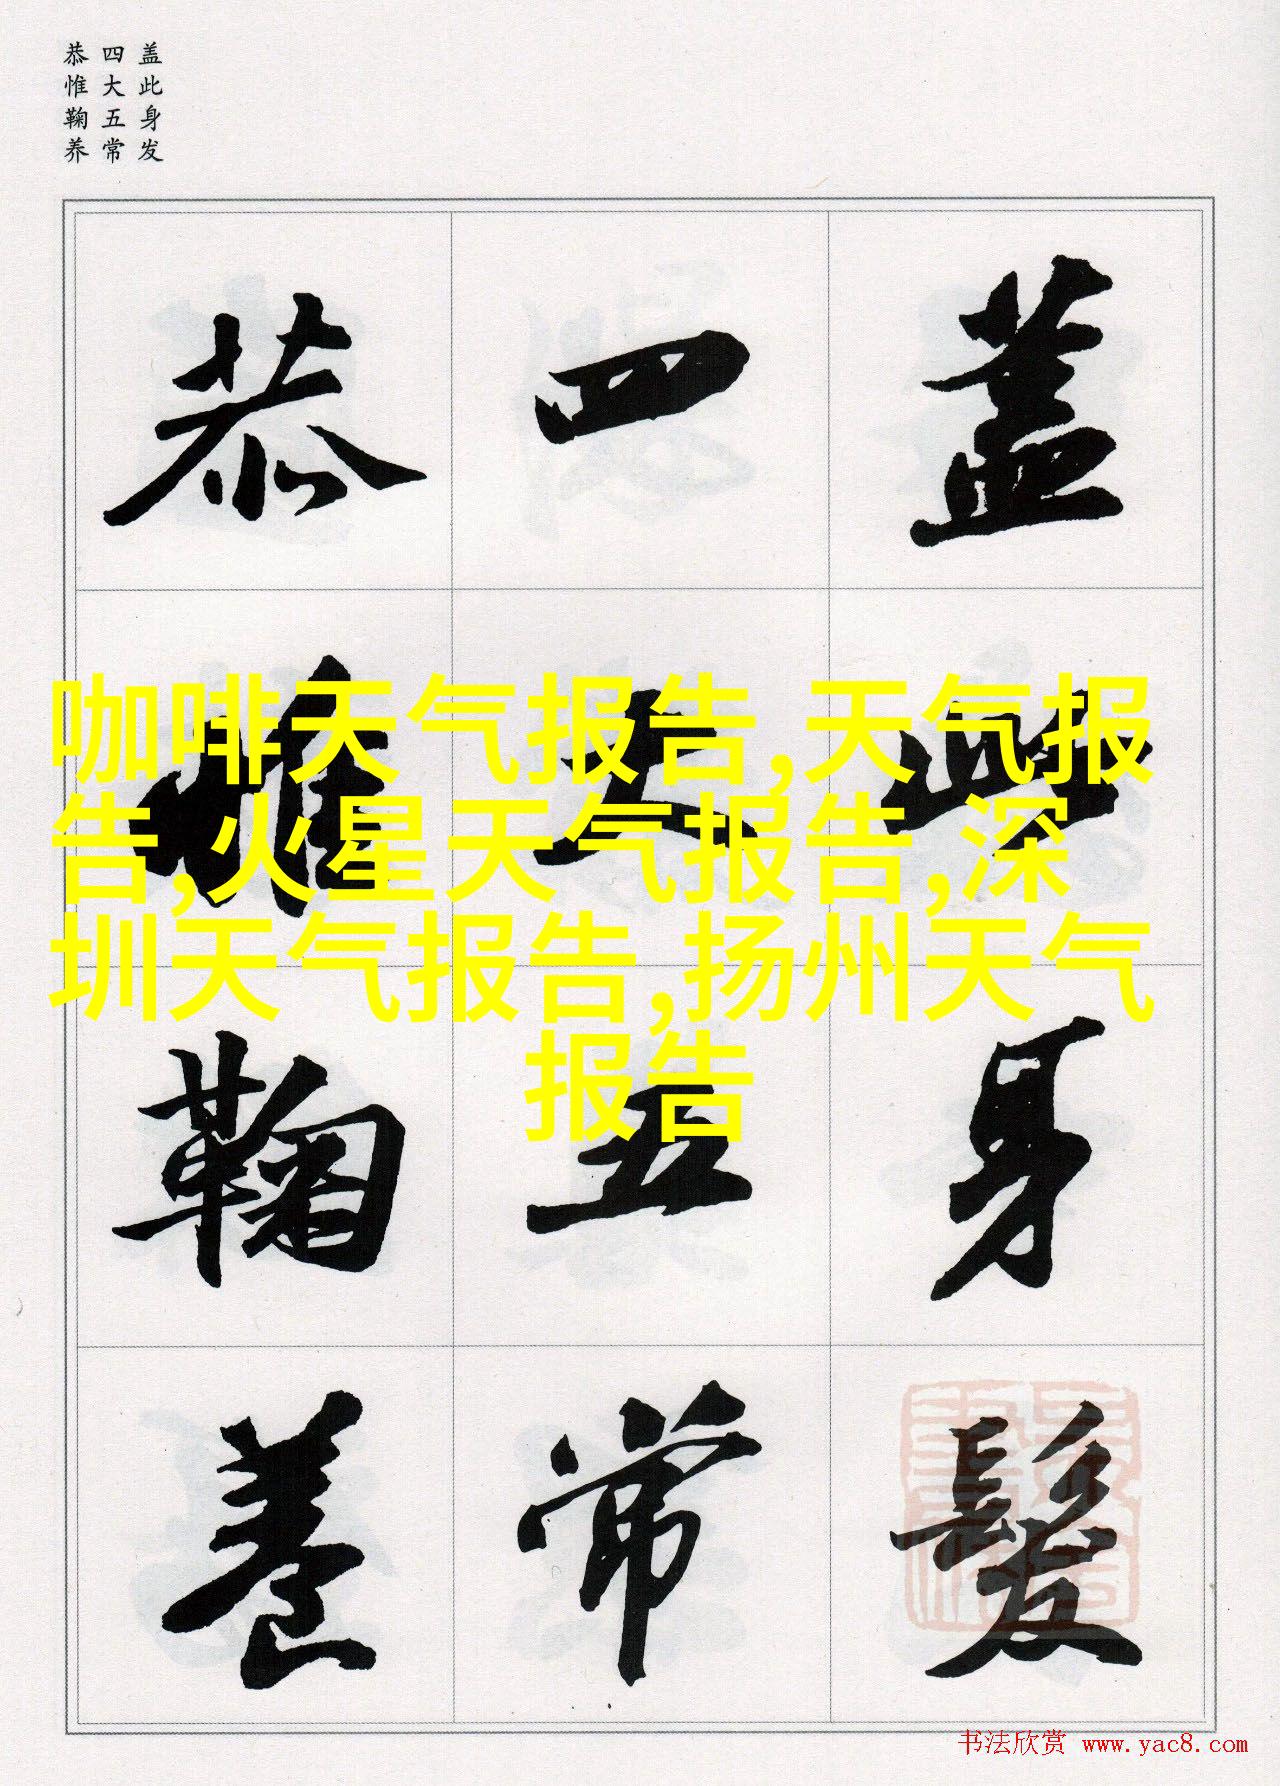 盖此身发
四大五常
恭惟鞠养
蓋此身髮
四大五常
恭惟鞠養
咖啡天气报告,天气报
告,火星天气报告,深
圳天气报告,扬州天气
报告
书法欣赏 www.yac8.com